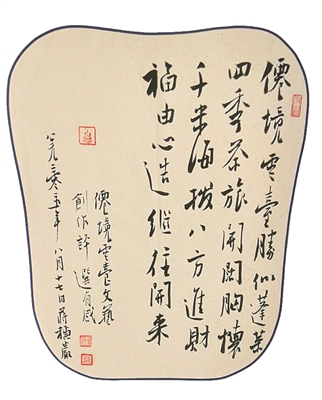 僊境雲臺勝似蓬莱
四季茶旅開闊胸懷
千米海拔八方進財
福由心造继往開来
僊境雲臺文藝
創作評選有感
八月十七日蒋